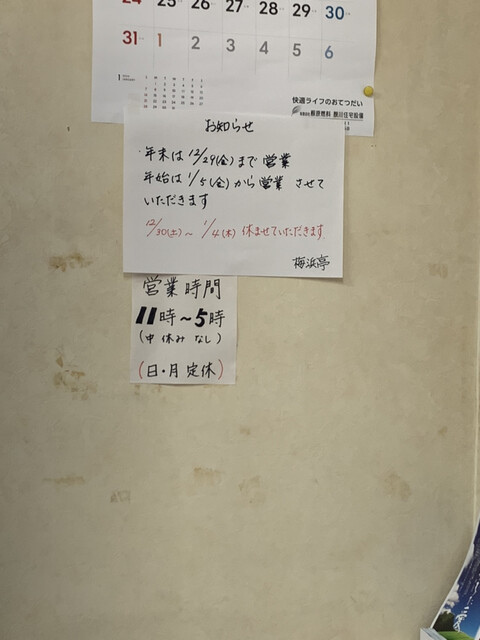 24 25 26 27 28 29 30
31 1 2 3 4 5 6
快適ライフのおてつだい
お知らせ
年末は12/29(金)まで営業
年始は1/5(金)から営業させて
いただきます
12/30(土)～1/4(木)休ませていただきます
梅浜亭
営業時間
11時～5時
(中休みなし)
(日・月定休)